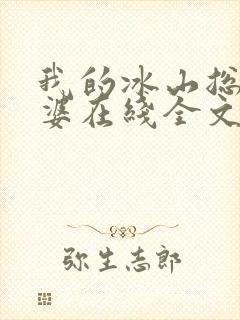 我的冰山总
婆在线全文
弥生志郎